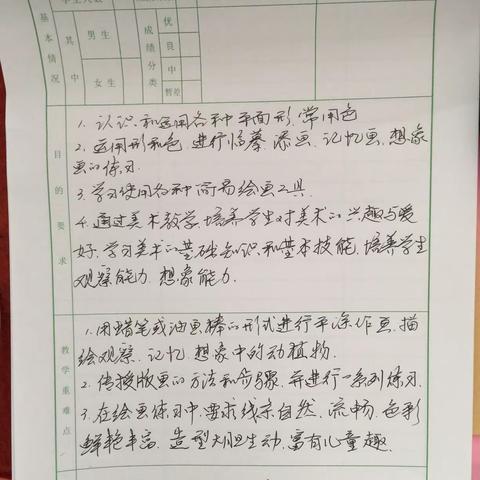 学生人数
基本情况
其中
男生
女生
成绩分类
优
良
中
暂差
目的要求
1. 认识和运用各种平面形、常用色
2. 运用形和色,进行临摹、添画、记忆画、想象
画的练习.
3. 学习使用各种简易绘画工具.
4. 通过美术教学,培养学生对美术的兴趣与爱
好,学习美术的基础知识和基本技能,培养学生
观察能力、想象能力.
教学重难点
1. 用蜡笔或油画棒的形式进行平涂作画,描
绘观察、记忆、想象中的动植物.
2. 传授版画的方法和步骤,并进行一系列练习.
3. 在绘画练习中,要求线条自然、流畅、色彩
鲜艳丰富、造型大胆生动,富有儿童趣.